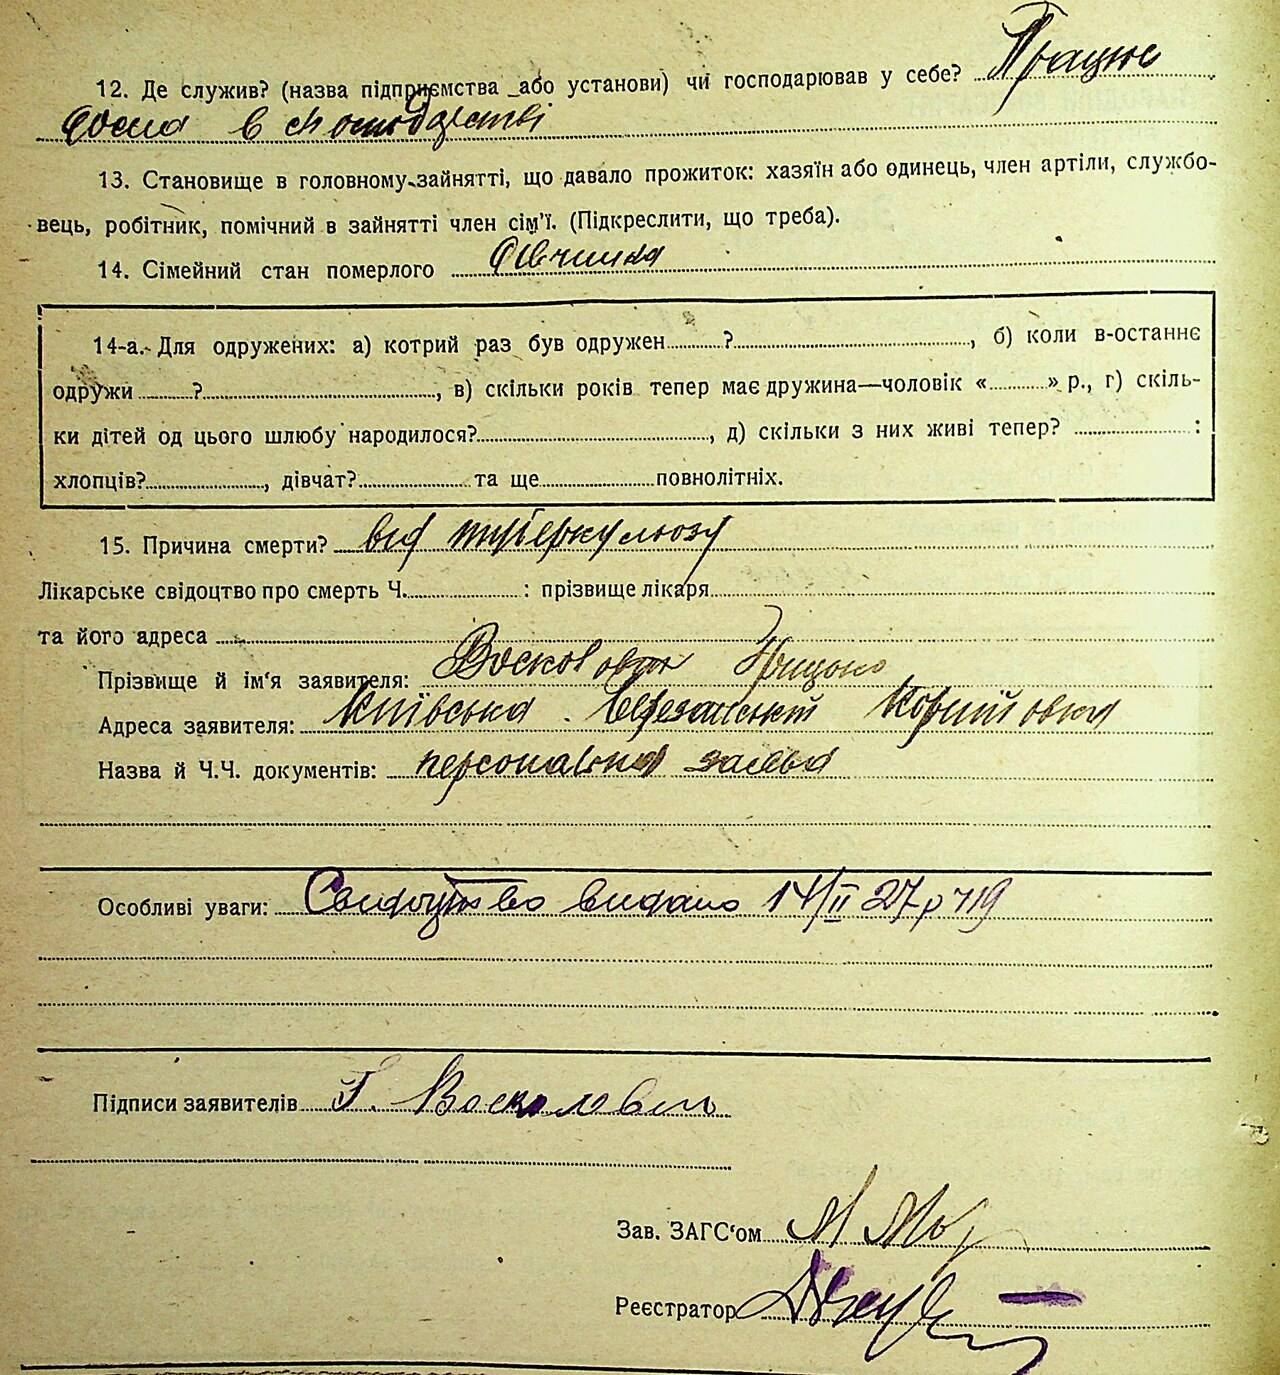 12. Де служив? (назва підприємства або установи) чи господарював у себе? Працює
дома в господарстві
13. Становище в головному зайнятті, що давало прожиток: хазяїн або одинець, член артіли, службо-
вець, робітник, помічний в зайнятті член сім'ї. (Підкреслити, що треба).
14. Сімейний стан померлого дівчина
14-а. Для одружених: а) котрий раз був одружен ? , б) коли в-останнє
одружи ? , в) скільки років тепер має дружина—чоловік « » р., г) скіль-
ки дітей од цього шлюбу народилося? , д) скільки з них живі тепер? :
хлопців? , дівчат? та ще повнолітніх.
15. Причина смерти? від туберкульозу
Лікарське свідоцтво про смерть Ч. : прізвище лікаря
та його адреса
Прізвище й ім'я заявителя: Грицько
Адреса заявителя: Київська
Назва й Ч.Ч. документів: персональна заява
Особливі уваги: Свидоцтво видано 14/II 27 р 719
Підписи заявителів Г.
Зав. ЗАГС'ом
Реєстратор